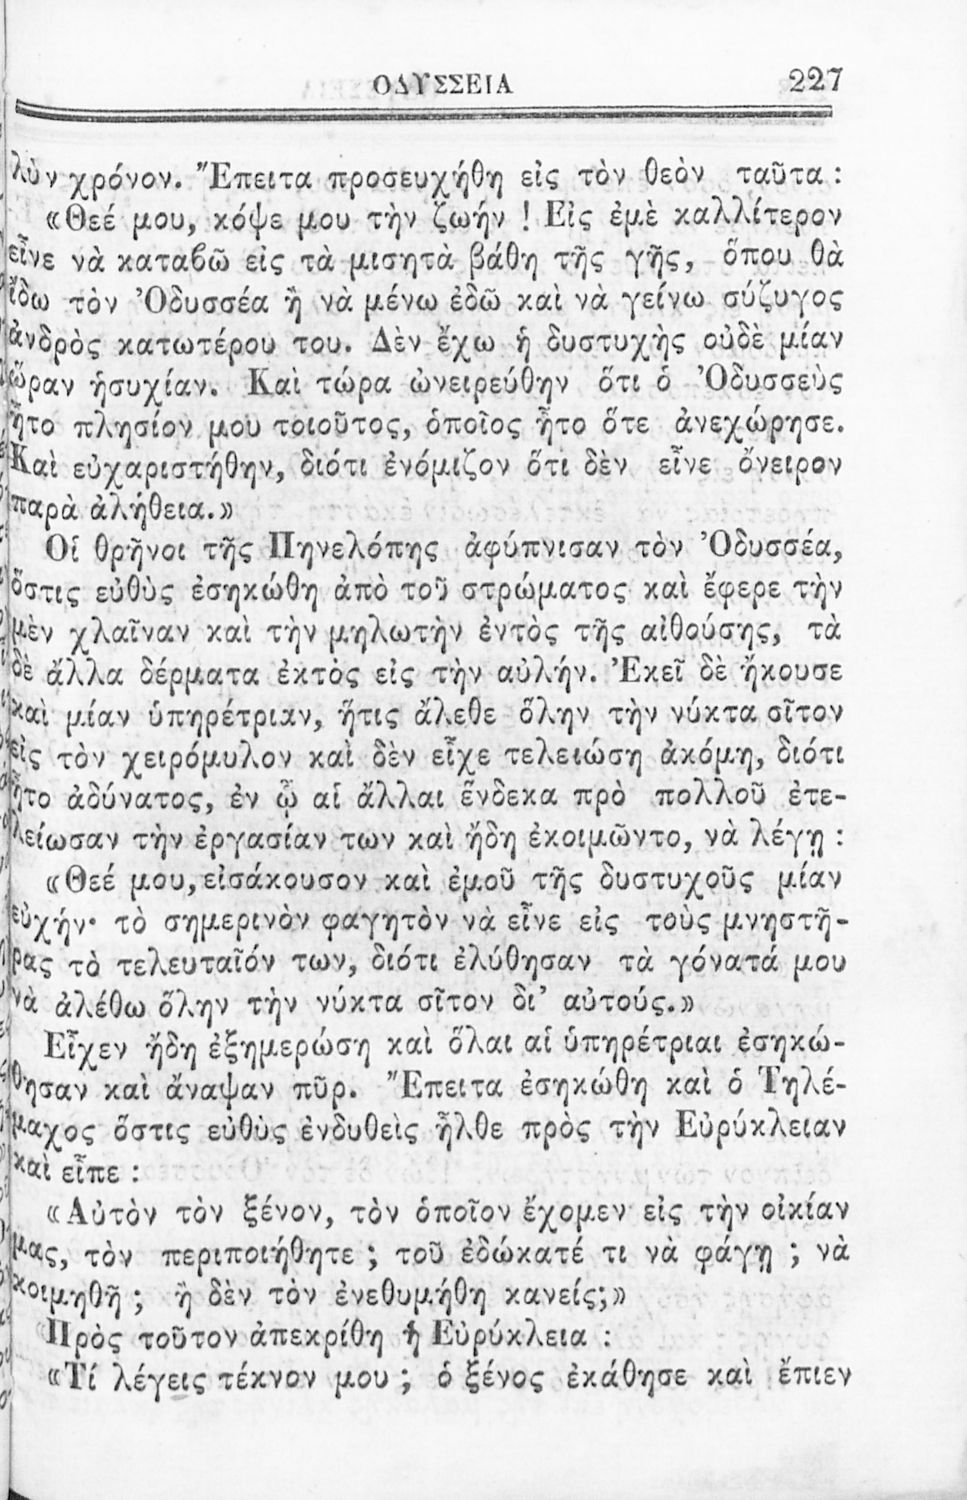 ΟΔΥΣΣΕΙΑ 227
λὺν χρόνον. Ἔπειτα προσευχήθη εἰς τὸν θεὸν ταῦτα :
«Θεέ μου, κόψε μου τὴν ζωήν ! Εἰς ἐμὲ καλλίτερον
εἶνε νὰ καταβῶ εἰς τὰ μισητὰ βάθη τῆς γῆς, ὅπου θὰ
ἴδω τὸν Ὀδυσσέα ἢ νὰ μένω ἐδῶ καὶ νὰ γείνω σύζυγος
ἀνδρὸς κατωτέρου του. Δὲν ἔχω ἡ δυστυχὴς οὐδὲ μίαν
ὥραν ἡσυχίαν. Καὶ τώρα ὠνειρεύθην ὅτι ὁ Ὀδυσσεὺς
ἦτο πλησίον μου τοιοῦτος, ὁποῖος ἦτο ὅτε ἀνεχώρησε.
Καὶ εὐχαριστήθην, διότι ἐνόμιζον ὅτι δὲν εἶνε ὄνειρον
παρὰ ἀλήθεια.»
Οἱ θρῆνοι τῆς Πηνελόπης ἀφύπνισαν τὸν Ὀδυσσέα,
ὅστις εὐθὺς ἐσηκώθη ἀπὸ τοῦ στρώματος καὶ ἔφερε τὴν
μὲν χλαῖναν καὶ τὴν μηλωτὴν ἐντὸς τῆς αἰθούσης, τὰ
δὲ ἄλλα δέρματα ἐκτὸς εἰς τὴν αὐλήν. Ἐκεῖ δὲ ἤκουσε
καὶ μίαν ὑπηρέτριαν, ἥτις ἄλεθε ὅλην τὴν νύκτα σῖτον
εἰς τὸν χειρόμυλον καὶ δὲν εἶχε τελειώση ἀκόμη, διότι
ἦτο ἀδύνατος, ἐν ᾧ αἱ ἄλλαι ἕνδεκα πρὸ πολλοῦ ἐτε-
λείωσαν τὴν ἐργασίαν των καὶ ἤδη ἐκοιμῶντο, νὰ λέγῃ :
«Θεέ μου, εἰσάκουσον καὶ ἐμοῦ τῆς δυστυχοῦς μίαν
εὐχήν· τὸ σημερινὸν φαγητὸν νὰ εἶνε εἰς τοὺς μνηστῆ-
ρας τὸ τελευταῖόν των, διότι ἐλύθησαν τὰ γόνατά μου
νὰ ἀλέθω ὅλην τὴν νύκτα σῖτον δι' αὐτούς.»
Εἶχεν ἤδη ἐξημερώση καὶ ὅλαι αἱ ὑπηρέτριαι ἐσηκώ-
θησαν καὶ ἄναψαν πῦρ. Ἔπειτα ἐσηκώθη καὶ ὁ Τηλέ-
μαχος ὅστις εὐθὺς ἐνδυθεὶς ἦλθε πρὸς τὴν Εὐρύκλειαν
καὶ εἶπε :
«Αὐτὸν τὸν ξένον, τὸν ὁποῖον ἔχομεν εἰς τὴν οἰκίαν
μας, τὸν περιποιήθητε ; τοῦ ἐδώκατέ τι νὰ φάγῃ ; νὰ
κοιμηθῇ ; ἢ δὲν τὸν ἐνεθυμήθη κανείς;»
Πρὸς τοῦτον ἀπεκρίθη ἡ Εὐρύκλεια :
«Τί λέγεις τέκνον μου ; ὁ ξένος ἐκάθησε καὶ ἔπιεν